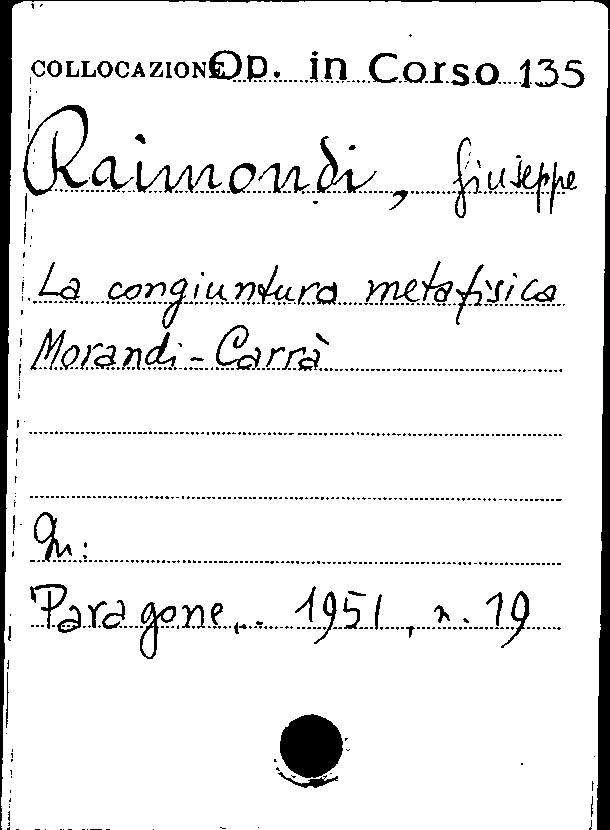 COLLOCAZIONE Op. in Corso 135
Raimondi, Giuseppe
La congiuntura metafisica
Morandi-Carrà
In:
Paragone, 1951, n. 19